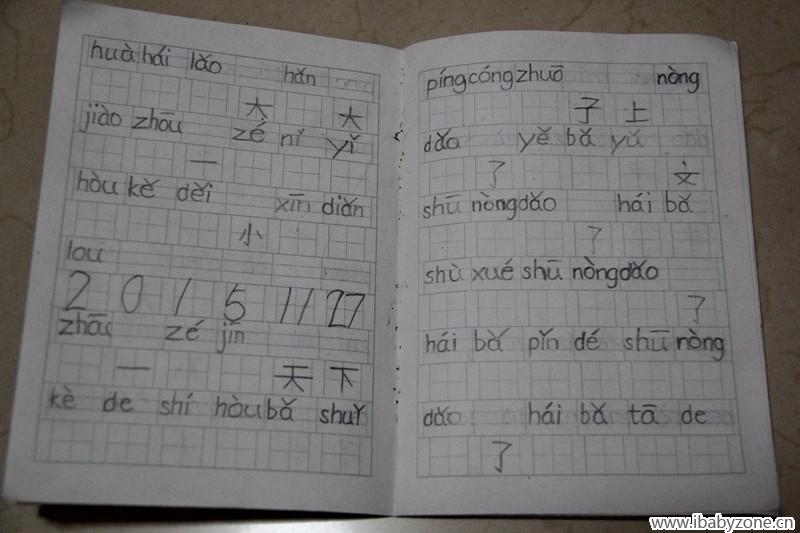 huà hái lǎo hǎn
大 大
jiào zhōu zé nǐ yǐ
一
hòu kě děi xīn diǎn
小
lou
2 0 1 5 11 27
zhāo zé jīn
一 天 下
kè de shí hòu bǎ shuǐ
píng cóng zhuō nòng
子 上
dǎo yě bǎ yǔ
了 文
shū nòng dǎo hái bǎ
了
shù xué shū nòng dǎo
了
hái bǎ pǐn dé shū nòng
dǎo hái bǎ tā de
了
www.ibabyzone.cn